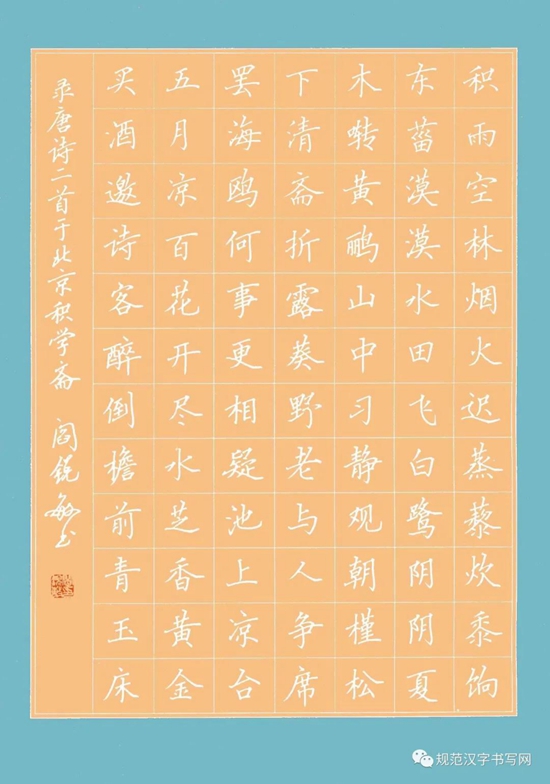 积雨空林烟火迟蒸藜炊黍饷
东菑漠漠水田飞白鹭阴阴夏
木啭黄鹂山中习静观朝槿松
下清斋折露葵野老与人争席
罢海鸥何事更相疑池上凉台
五月凉百花开尽水芝香黄金
买酒邀诗客醉倒檐前青玉床
录唐诗二首于北京积学斋 阎锐敏书
规范汉字书写网